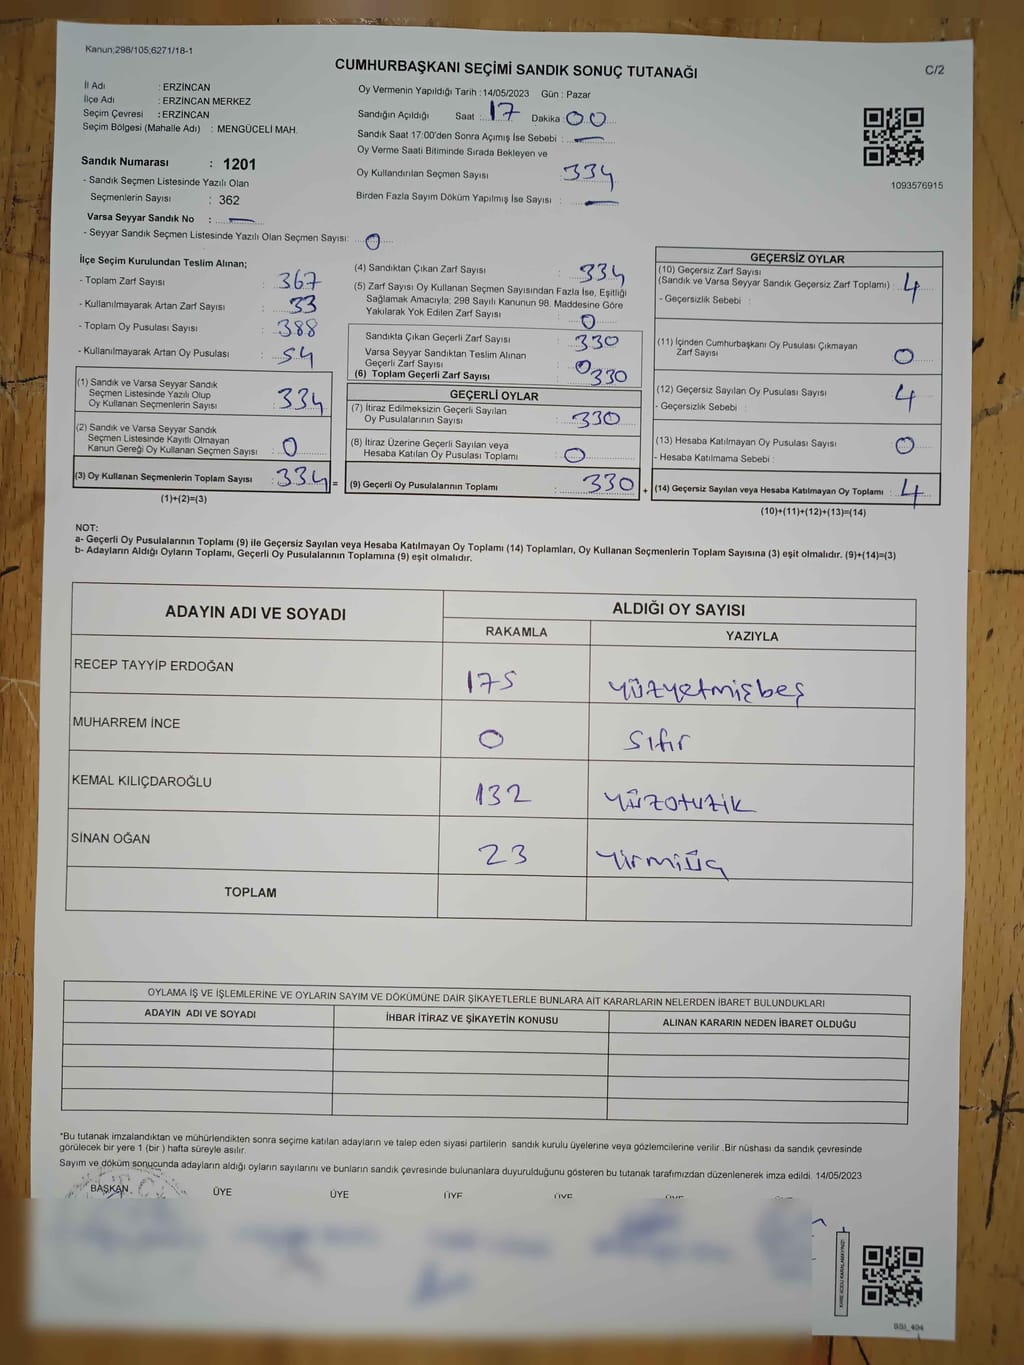 Kanun;298/105;6271/18-1
C/2
CUMHURBAŞKANI SEÇİMİ SANDIK SONUÇ TUTANAĞI
İl Adı : ERZİNCAN
İlçe Adı : ERZİNCAN MERKEZ
Seçim Çevresi : ERZİNCAN
Seçim Bölgesi (Mahalle Adı) : MENGÜCELİ MAH.
Sandık Numarası : 1201
- Sandık Seçmen Listesinde Yazılı Olan
Seçmenlerin Sayısı : 362
Varsa Seyyar Sandık No : —
- Seyyar Sandık Seçmen Listesinde Yazılı Olan Seçmen Sayısı: 0
Oy Vermenin Yapıldığı Tarih :14/05/2023 Gün : Pazar
Sandığın Açıldığı Saat : 17 Dakika : 00
Sandık Saat 17:00'den Sonra Açımış İse Sebebi : —
Oy Verme Saati Bitiminde Sırada Bekleyen ve
Oy Kullandırılan Seçmen Sayısı : 334
Birden Fazla Sayım Döküm Yapılmış İse Sayısı : —
1093576915
İlçe Seçim Kurulundan Teslim Alınan;
- Toplam Zarf Sayısı : 367
- Kullanılmayarak Artan Zarf Sayısı : 33
- Toplam Oy Pusulası Sayısı : 388
- Kullanılmayarak Artan Oy Pusulası : 54
(1) Sandık ve Varsa Seyyar Sandık
Seçmen Listesinde Yazılı Olup
Oy Kullanan Seçmenlerin Sayısı : 334
(2) Sandık ve Varsa Seyyar Sandık
Seçmen Listesinde Kayıtlı Olmayan
Kanun Gereği Oy Kullanan Seçmen Sayısı : 0
(3) Oy Kullanan Seçmenlerin Toplam Sayısı : 334 =
(1)+(2)=(3)
(4) Sandıktan Çıkan Zarf Sayısı : 334
(5) Zarf Sayısı Oy Kullanan Seçmen Sayısından Fazla İse, Eşitliği
Sağlamak Amacıyla; 298 Sayılı Kanunun 98. Maddesine Göre
Yakılarak Yok Edilen Zarf Sayısı : 0
Sandıkta Çıkan Geçerli Zarf Sayısı : 330
Varsa Seyyar Sandıktan Teslim Alınan
Geçerli Zarf Sayısı : 0
(6) Toplam Geçerli Zarf Sayısı : 330
GEÇERLİ OYLAR
(7) İtiraz Edilmeksizin Geçerli Sayılan
Oy Pusulalarının Sayısı : 330
(8) İtiraz Üzerine Geçerli Sayılan veya
Hesaba Katılan Oy Pusulası Toplamı : 0
(9) Geçerli Oy Pusulalarının Toplamı : 330 +
GEÇERSİZ OYLAR
(10) Geçersiz Zarf Sayısı
(Sandık ve Varsa Seyyar Sandık Geçersiz Zarf Toplamı) : 4
- Geçersizlik Sebebi :
(11) İçinden Cumhurbaşkanı Oy Pusulası Çıkmayan
Zarf Sayısı : 0
(12) Geçersiz Sayılan Oy Pusulası Sayısı : 4
- Geçersizlik Sebebi :
(13) Hesaba Katılmayan Oy Pusulası Sayısı : 0
- Hesaba Katılmama Sebebi :
(14) Geçersiz Sayılan veya Hesaba Katılmayan Oy Toplamı : 4
(10)+(11)+(12)+(13)=(14)
NOT:
a- Geçerli Oy Pusulalarının Toplamı (9) ile Geçersiz Sayılan veya Hesaba Katılmayan Oy Toplamı (14) Toplamları, Oy Kullanan Seçmenlerin Toplam Sayısına (3) eşit olmalıdır. (9)+(14)=(3)
b- Adayların Aldığı Oyların Toplamı, Geçerli Oy Pusulalarının Toplamına (9) eşit olmalıdır.
ADAYIN ADI VE SOYADI ALDIĞI OY SAYISI
RAKAMLA YAZIYLA
RECEP TAYYİP ERDOĞAN 175 Yüzyetmişbeş
MUHARREM İNCE 0 Sıfır
KEMAL KILIÇDAROĞLU 132 Yüzotuzik
SİNAN OĞAN 23 Yirmiüç
TOPLAM
OYLAMA İŞ VE İŞLEMLERİNE VE OYLARIN SAYIM VE DÖKÜMÜNE DAİR ŞİKAYETLERLE BUNLARA AİT KARARLARIN NELERDEN İBARET BULUNDUKLARI
ADAYIN ADI VE SOYADI İHBAR İTİRAZ VE ŞİKAYETİN KONUSU ALINAN KARARIN NEDEN İBARET OLDUĞU
*Bu tutanak imzalandıktan ve mühürlendikten sonra seçime katılan adayların ve talep eden siyasi partilerin sandık kurulu üyelerine veya gözlemcilerine verilir .Bir nüshası da sandık çevresinde
görülecek bir yere 1 (bir ) hafta süreyle asılır.
Sayım ve döküm sonucunda adayların aldığı oyların sayılarını ve bunların sandık çevresinde bulunanlara duyurulduğunu gösteren bu tutanak tarafımızdan düzenlenerek imza edildi. 14/05/2023
BAŞKAN ÜYE ÜYE ÜYE ÜYE ÜYE ÜYE